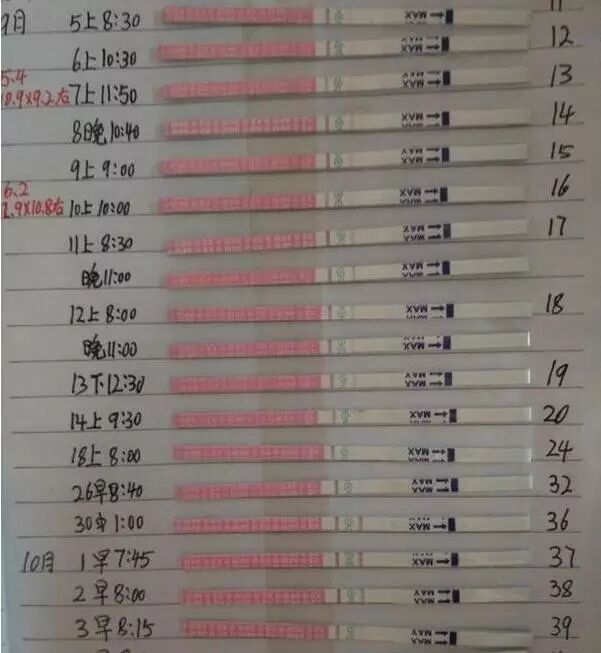 11
9月 5上8:30
12
6上10:30
5.4
13
10.9×9.2右 7上11:50
14
8晚10:40
15
9上9:00
6.2
16
1.9×10.8右 10上10:00
17
11上8:30
晚11:00
12上8:00 18
晚11:00
13下12:30 19
14上9:30 20
18上8:00 24
26早8:40 32
30中1:00 36
10月 1早7:45 37
2早8:00 38
3早8:15 39
MAX